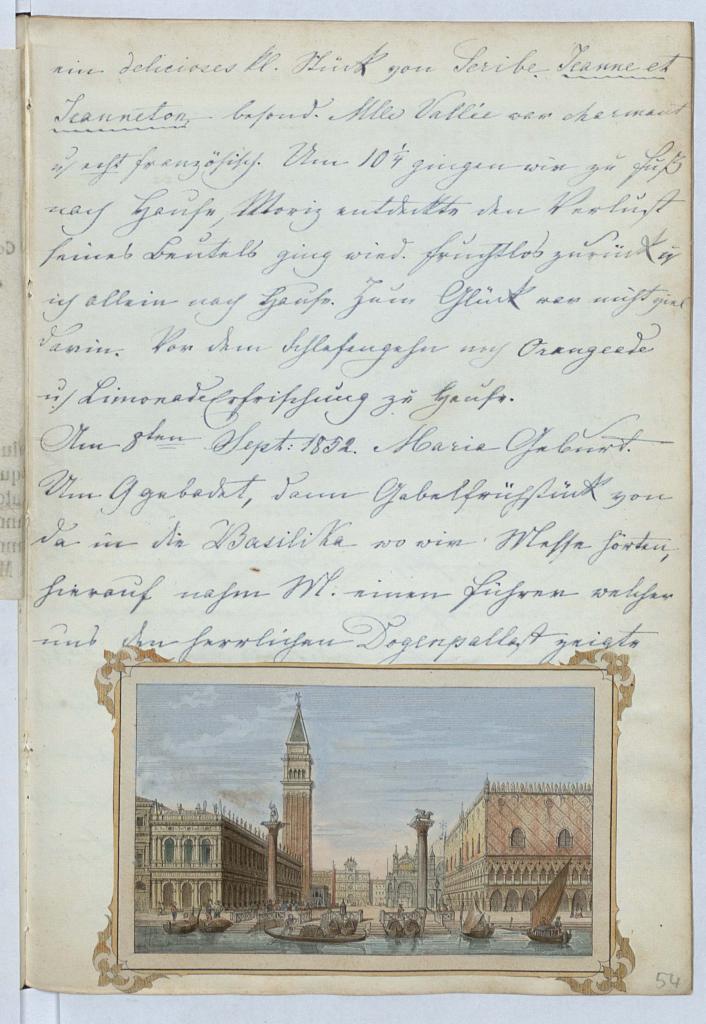 ein delicioses kl. Stück von Scribe Jeanne et
Jeanneton, besond. Mlle Vallée war charmant
u/ echt französisch. Um 10¼ gingen wir zu Fuß
nach Hause, Moriz entdeckte den Verlust
seines Beutels ging wied. fruchtlos zurück u/
ich allein nach Hause. Zum Glück war nicht viel
darin. Vor dem Schlafengehn noch Orangeade
u/ Limonade Erfrischung zu Hause.
Am 8ten Sept: 1852. Maria Geburt.
Um 9 gebadet, dann Gabelfrühstück von
da in die Basilika wo wir Messe hörten,
hierauf nahm M. einen Führer welcher
uns den herrlichen Dogenpallast zeigte
54